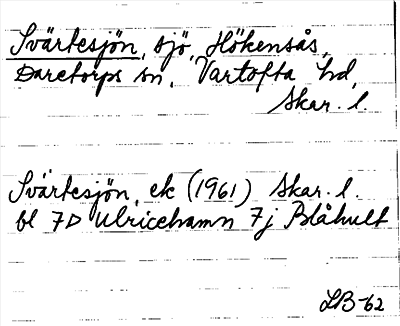 Svärtesjön, sjö, Hökensås,
Daretorps sn, Vartofta hd,
Skar. l.
Svärtesjön, ek (1961) Skar. l.
bl 7D Ulricehamn 7j Blåhult
LB-62